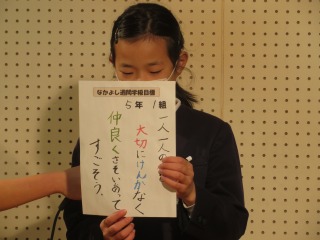 なかよし週間学級目標
5年 1組
一人一人の
大切にけんかなく
仲良くさそいあって
すごそう。